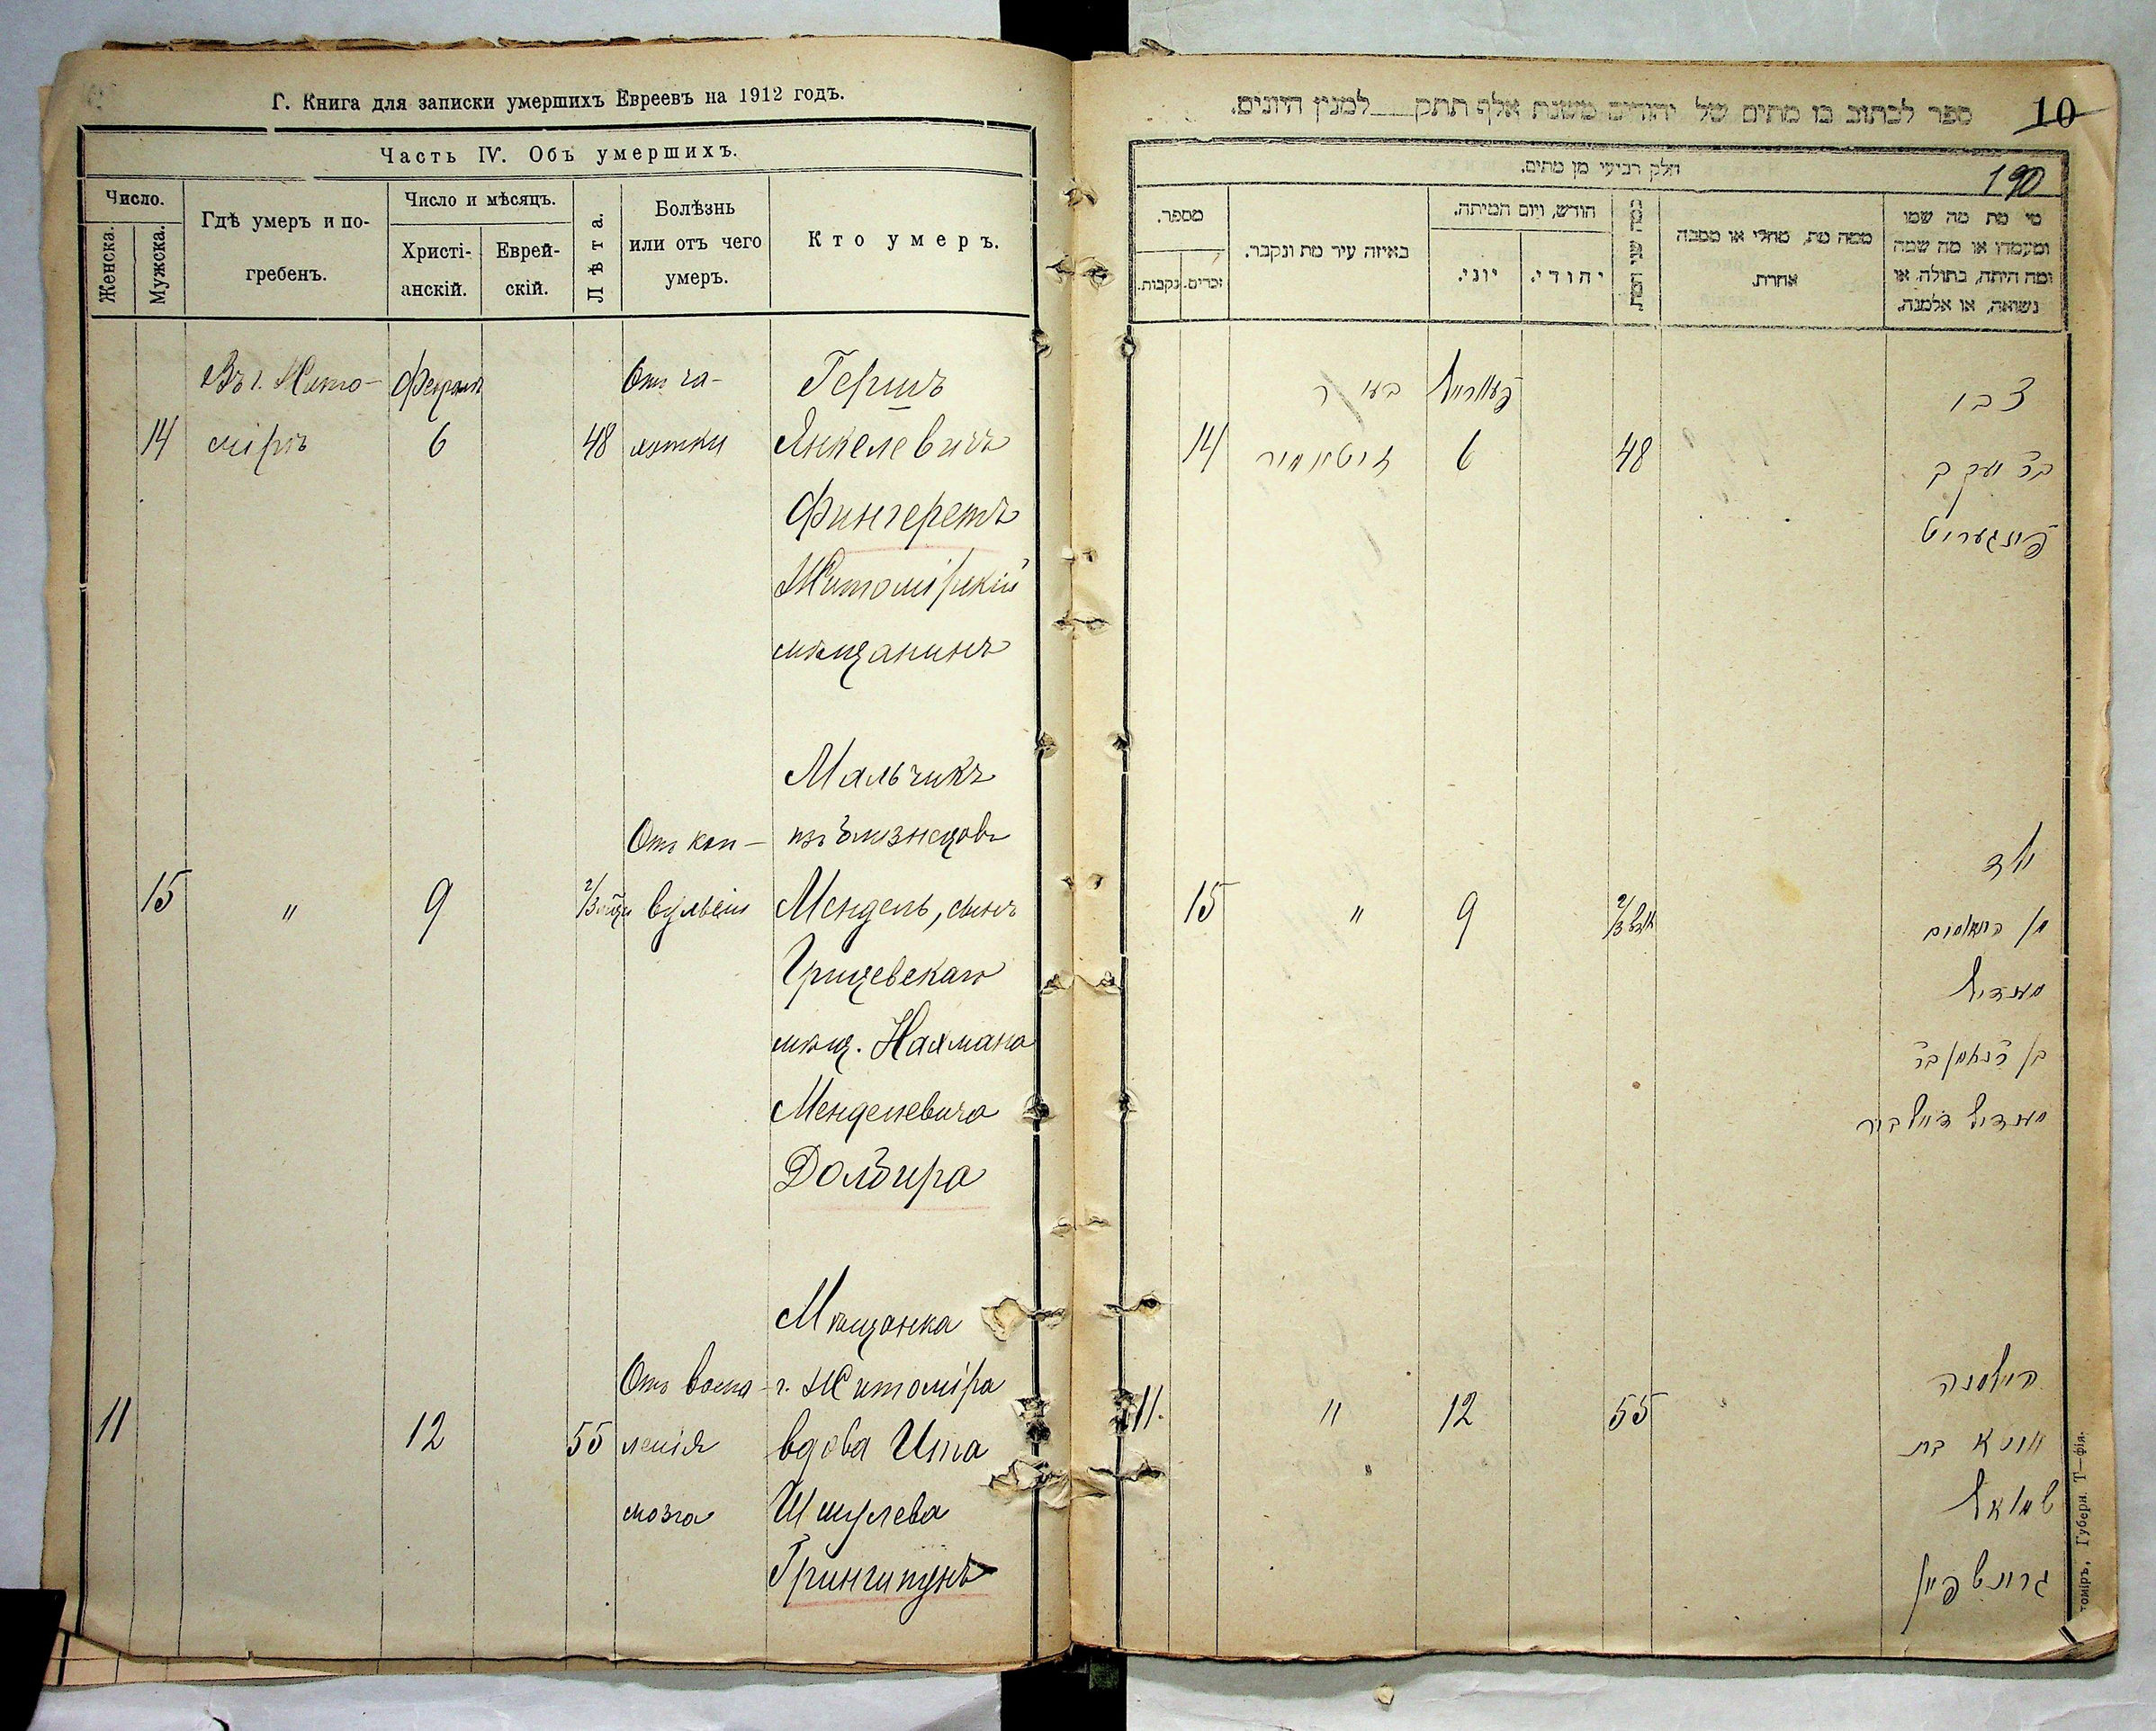 Г. Книга для записки умершихъ Евреевъ на 1912 годъ.
Часть IV. Объ умершихъ.
Число.
Женска.
Мужска.
Гдѣ умеръ и по-
гребенъ.
Число и мѣсяцъ.
Христі-
анскій.
Еврей-
скій.
Лѣта.
Болѣзнь
или отъ чего
умеръ.
Кто умеръ.
Въ г. Жито- Февраля Отъ ча- Гершъ
14 мірѣ 6 48 хотки Янкелевичъ
Фингеретъ
Житомірскій
мѣщанинъ
Мальчикъ
Отъ кон- изъ близнецовъ
15 " 9 2/3 вульсіи Мендель, сынъ
мѣщ. Нахмана
Менделевича
Долбира
Мѣщанка
Отъ воспа- г. Житоміра
11 12 55 ленія вдова Ита
мозга Шмулева
ספר לכתוב בו מתים של יהודים משנת אלף תתק למנין היונים.
10
190
חלק רביעי מן מתים.
מספר.
זכרים.
נקבות.
באיזה עיר מת ונקבר.
חודש, ויום המיתה.
יוני.
יהודי.
כמה שני המת
ממה מת, מחלי או מסבה
אחרת.
מי מת מה שמו
ומעמדו או מה שמה
ומה היתה, בתולה, או
נשואה, או אלמנה.
פעווראל צבי
14 זיטאמיר 6 48 בר יעקב
פינגערוט
ילד
15 " 9 2/3 מן התאומים
מענדיל
בן ר נחמן בר
מענדיל דאלביר
האלמנה
11. " 12 55 איטא בת
שמואל
томіръ, Губерн. Т—фія.